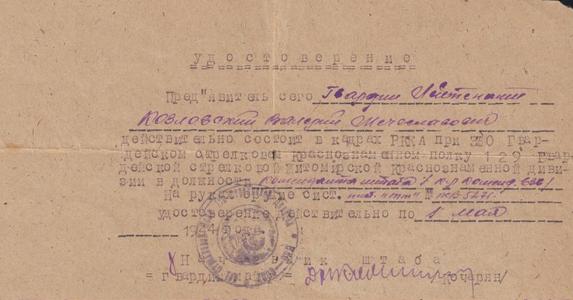 удостоверение
Пред"явитель сего Гвардии Лейтенант
Козловский Валерий Мечеславович
действительно состоит в кадрах РККА при 380 Гвар-
дейском стрелковом Краснознаменном полку 129 Гвар
дейской стрелковой Житомирской Краснознаменной диви-
зии в должности коменданта штаба
На руках оружие сист. пист. "тт" №
удостоверение действительно по 1 мая
194 года.
Начальник штаба
=гвардии майор= /Кочарян/